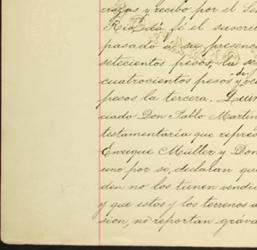 cizas y recibo por el Se
Rio, dá fé el suscrit
pasado á su presenc
setecientos pesos, la se
cuatrocientos pesos y ve
pesos la tercera. Quin
ciado Don Pablo Martin
testamentaria que repres
Enrique Müller y Don
uno por se, declaran qu
den no los tienen vendi
y que estos y los terrenos a
sion, no reportan gráva